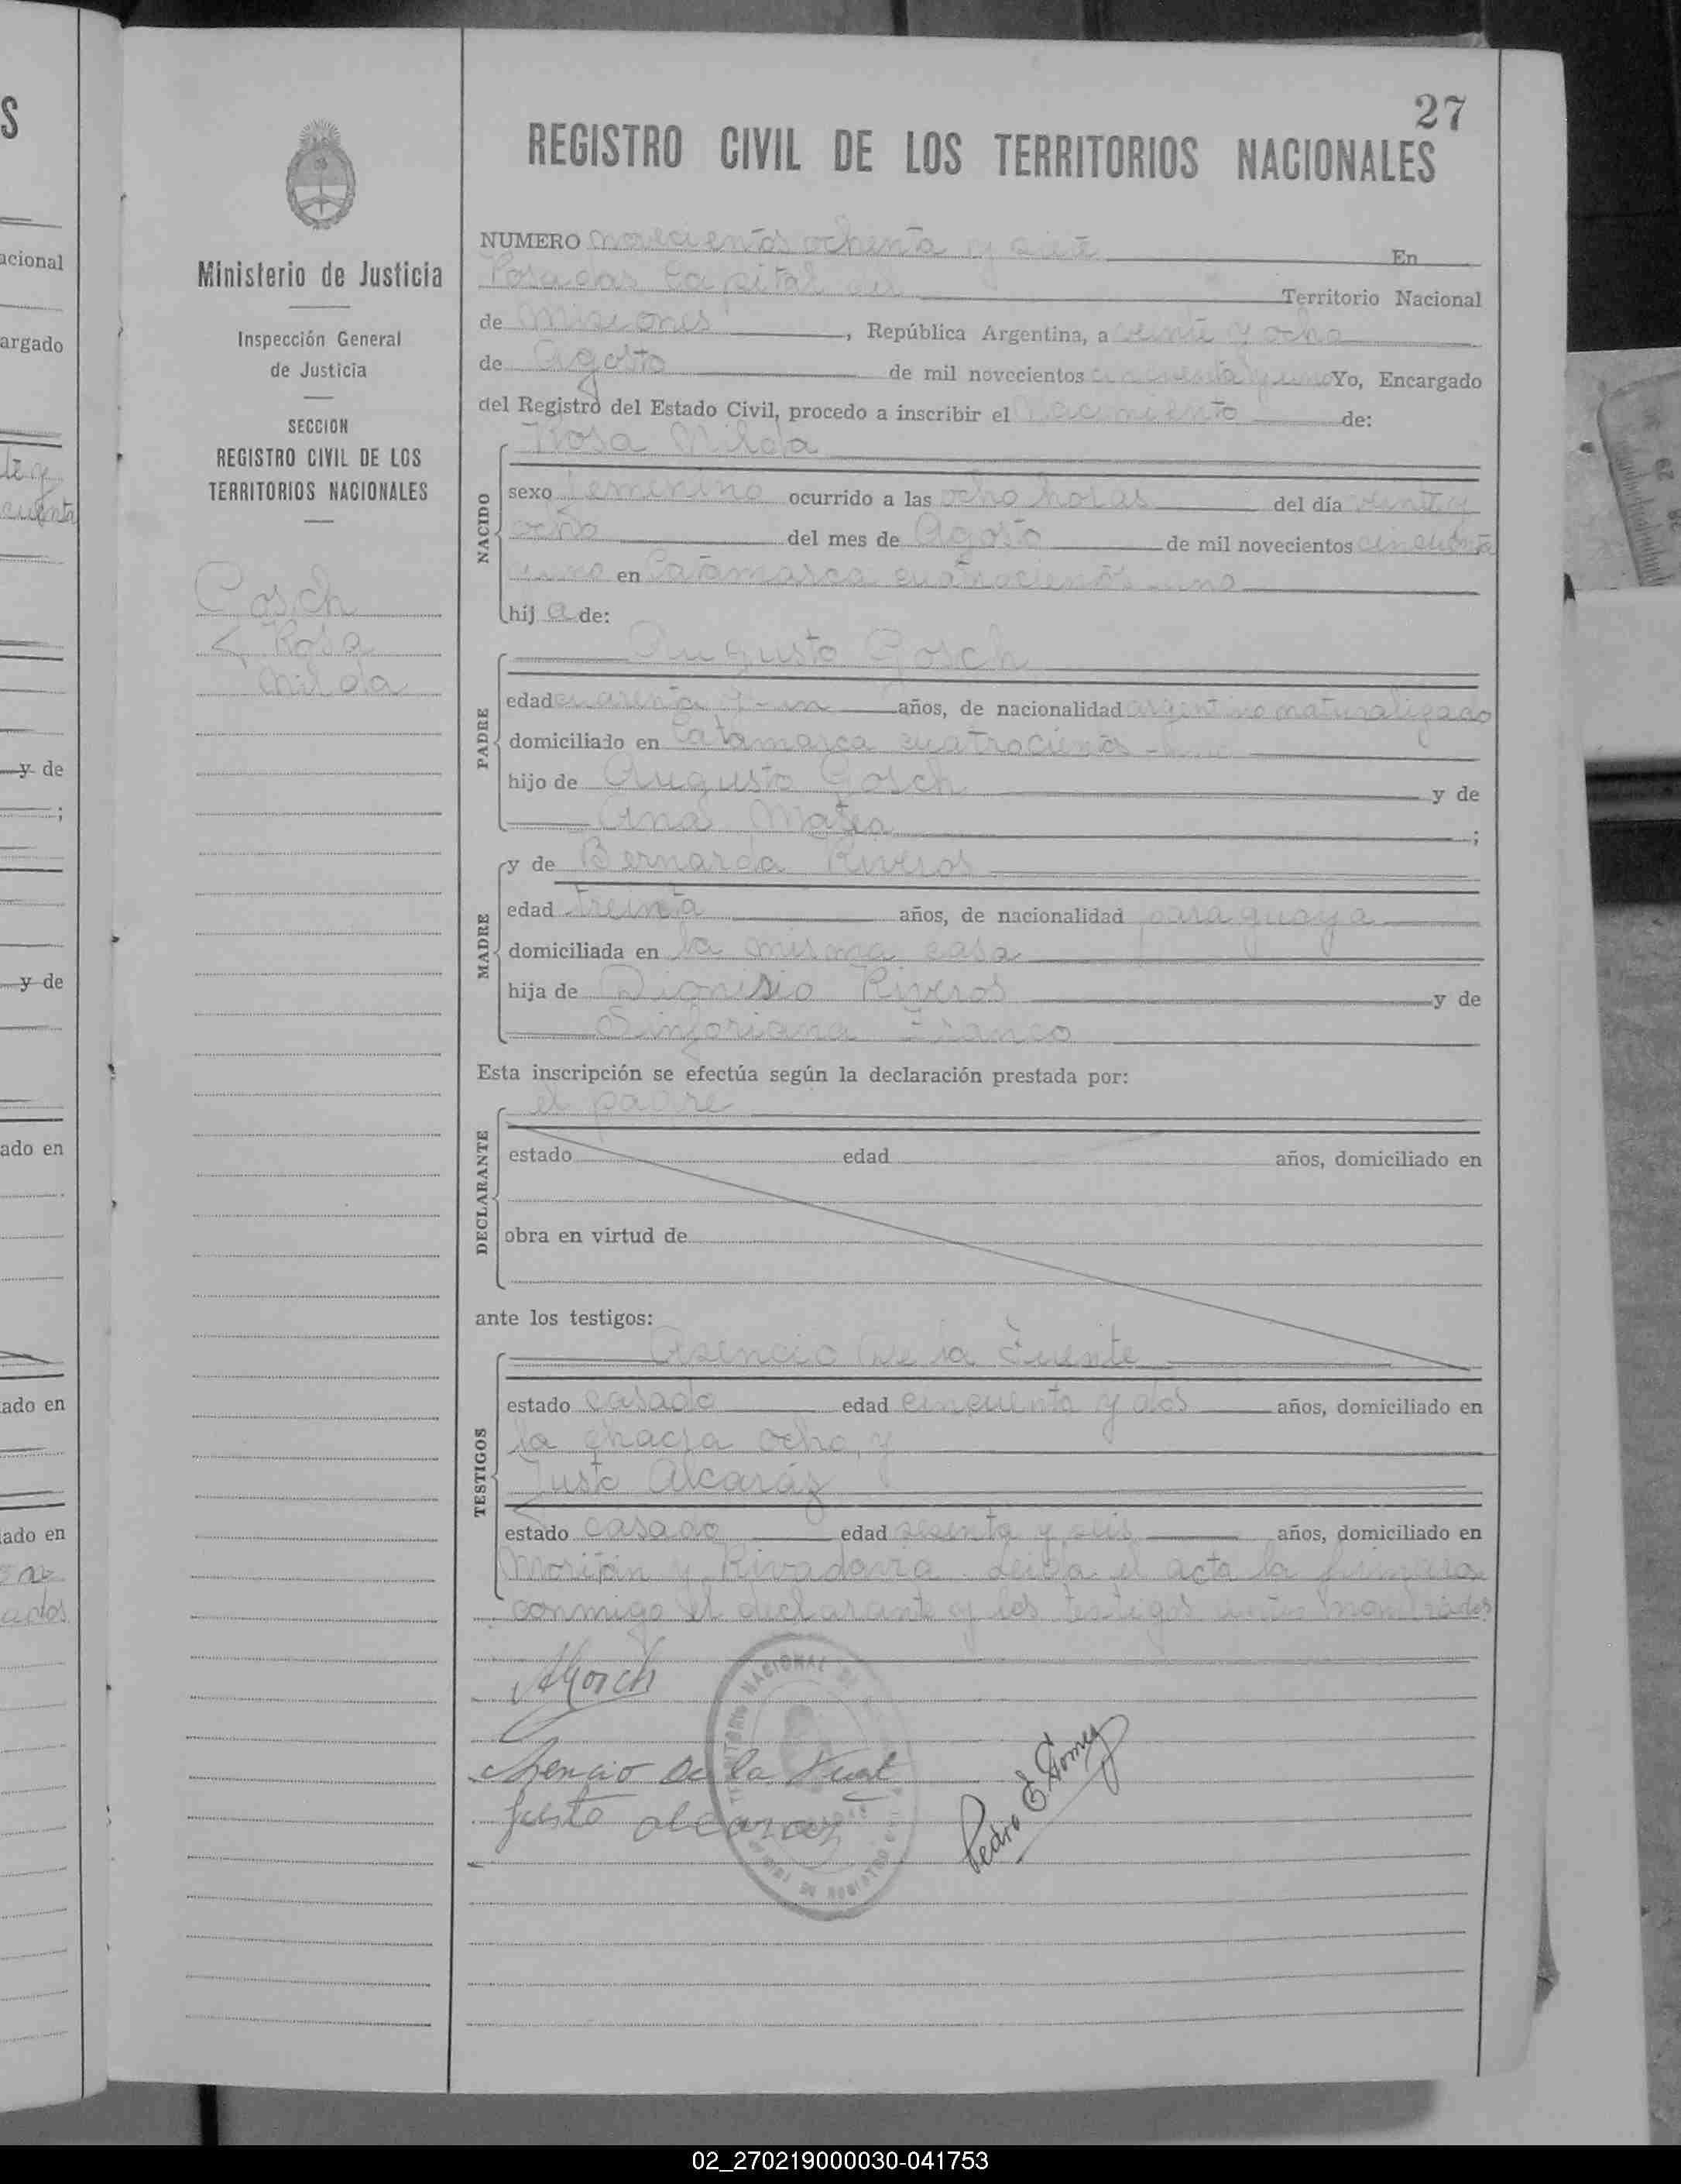 27
REGISTRO CIVIL DE LOS TERRITORIOS NACIONALES
Ministerio de Justicia
Inspección General
de Justicia
SECCION
REGISTRO CIVIL DE LOS
TERRITORIOS NACIONALES
Gosch
Rosa
Nilda
NUMERO novecientos ochenta y siete En
Posadas Capital del Territorio Nacional
de Misiones, República Argentina, a veinte y ocho
de Agosto de mil novecientos cincuenta y uno Yo, Encargado
del Registro del Estado Civil, procedo a inscribir el nacimiento de:
Rosa Nilda
NACIDO
sexo femenino ocurrido a las ocho horas del día veinte y
ocho del mes de Agosto de mil novecientos cincuenta
uno en Catamarca cuatrocientos uno
hij a de:
Augusto Gosch
PADRE
edad cuarenta y un años, de nacionalidad argentino naturalizado
domiciliado en Catamarca cuatrocientos uno
hijo de Augusto Gosch y de
Ana ;
y de Bernarda Riveros
MADRE
edad treinta años, de nacionalidad paraguaya
domiciliada en la misma casa
hija de Dionisio Riveros y de
Sinforiana Franco
Esta inscripción se efectúa según la declaración prestada por:
el padre
DECLARANTE
estado edad años, domiciliado en
obra en virtud de
ante los testigos:
Asencio De la Fuente
TESTIGOS
estado casado edad cincuenta y dos años, domiciliado en
la chacra ocho, y
Justo Alcaráz
estado casado edad sesenta y seis años, domiciliado en
y Rivadavia. Leida el acta la firmaron
conmigo el declarante y los testigos antes nombrados
AGosch
Asencio De la Fuente
Justo alcaraz
Pedro E. Gomez
acional
argado
y de
y de
ado en
ado en
iado en
02_270219000030-041753